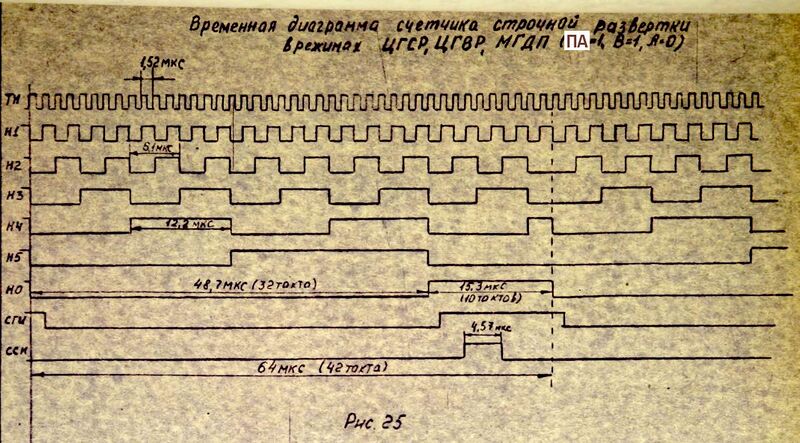 Временная диаграмма счетчика строчной развертки
в режимах ЦГСР, ЦГВР, МГДП (ПА=1, В=1, А=0)
1,52 мкс
ТИ
Н1
5,1 мкс
Н2
Н3
12,2 мкс
Н4
Н5
48,7 мкс (32 такта)
15,3 мкс
(10 тактов)
НО
СГИ
4,57 мкс
ССИ
64 мкс (42 такта)
Рис. 25